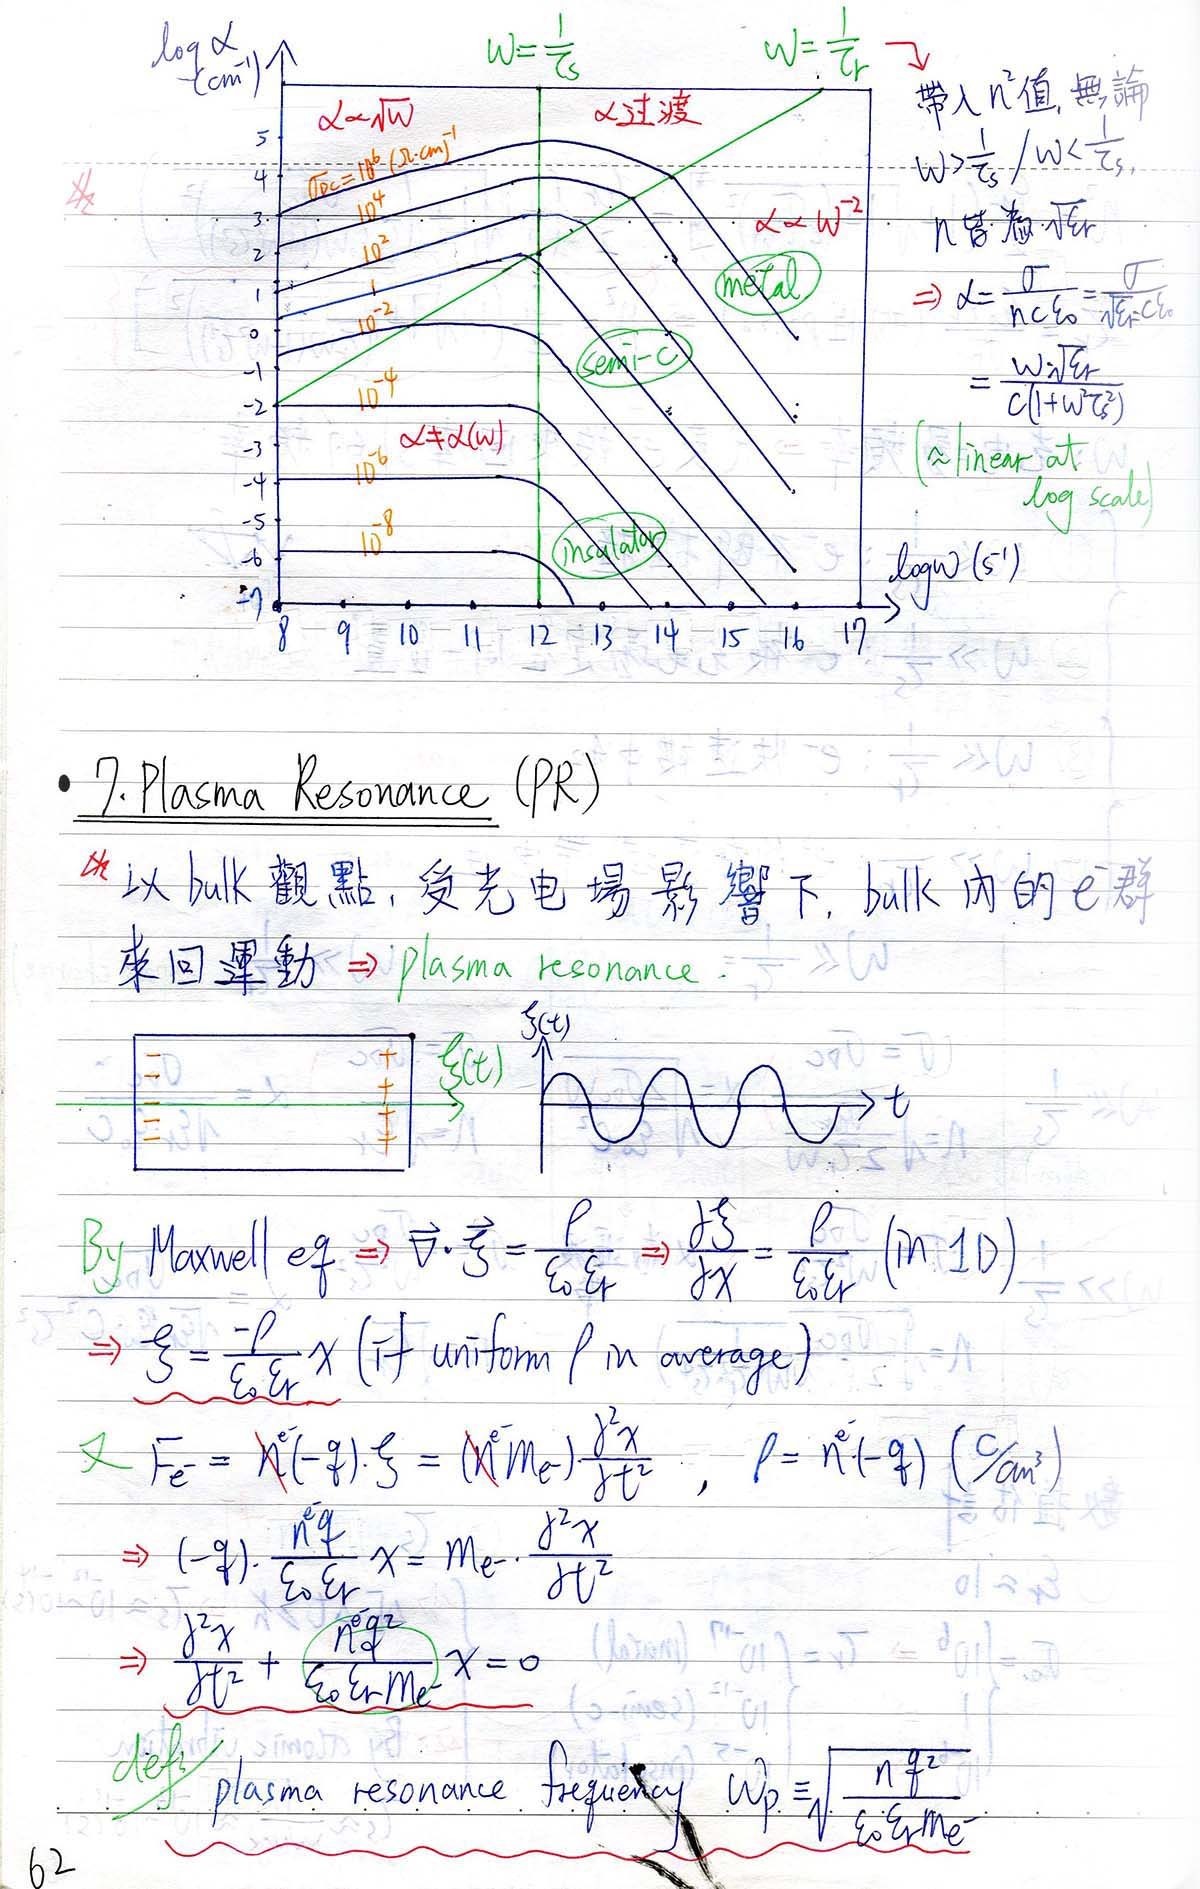 log α (cm⁻¹)
ω = 1/τs
ω = 1/τr ⇒
帶入 n² 值, 無論
ω > 1/τs / ω < 1/τs,
n 皆為 √εr
⇒ α = σ/(ncε₀) = σ/(√εr cε₀)
= ω√εr / c(1+ω²τs²)
(≈ linear at
log scale)
α ∝ √ω
α 过渡
α ∝ ω⁻²
σDC = 10⁶ (Ω·cm)⁻¹
10⁴
10²
1
10⁻²
10⁻⁴
α ≠ α(ω)
10⁻⁶
10⁻⁸
metal
semi-c
insulator
5
4
3
2
1
0
-1
-2
-3
-4
-5
-6
-7
8 9 10 11 12 13 14 15 16 17
log ω (s⁻¹)
• 7. Plasma Resonance (PR)
以 bulk 觀點, 受光电場影響下, bulk 內的 e⁻群
來回運動 ⇒ plasma resonance.
ξ(t)
ξ(t)
t
By Maxwell eq ⇒ ∇⃗·ξ⃗ = ρ/(ε₀εr) ⇒ ∂ξ/∂x = ρ/(ε₀εr) (in 1D)
⇒ ξ = -ρ/(ε₀εr) x (if uniform ρ in average)
又 Fe⁻ = nᵉ⁻(-q)·ξ = (nᵉ⁻me⁻) ∂²x/∂t² , ρ = nᵉ⁻·(-q) (C/cm³)
⇒ (-q)· nᵉ⁻q/(ε₀εr) x = me⁻ · ∂²x/∂t²
⇒ ∂²x/∂t² + nᵉ⁻q²/(ε₀εr me⁻) x = 0
def: plasma resonance frequency ωp ≡ √(nq²/(ε₀εr me⁻))
62